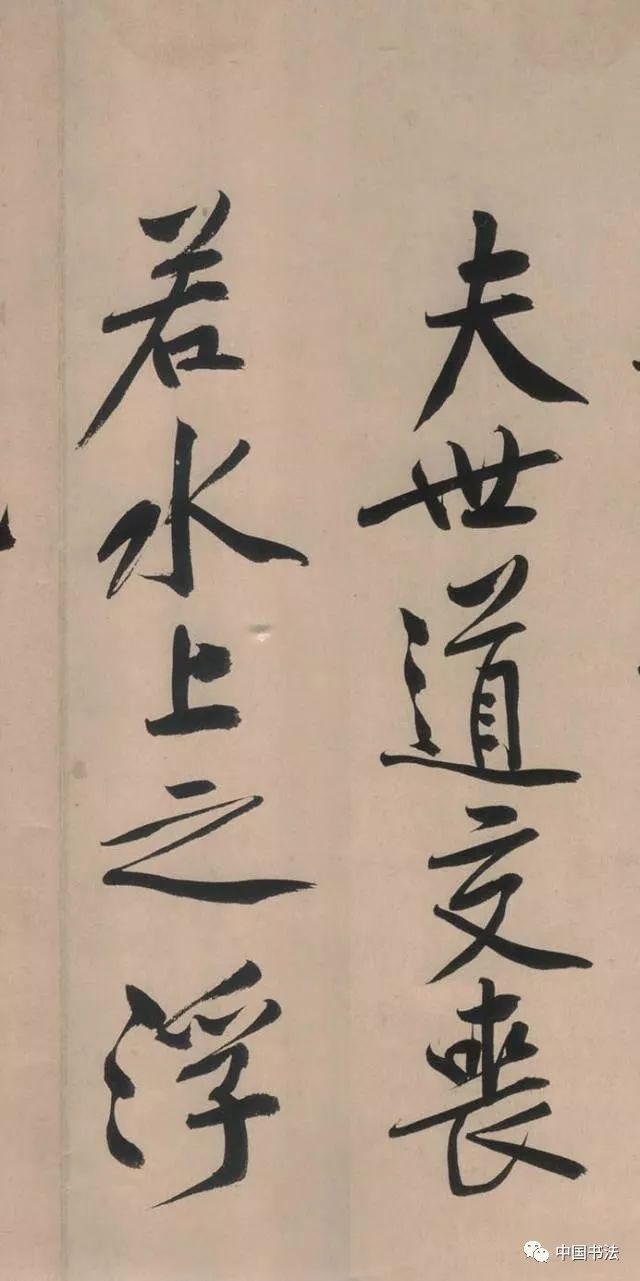 夫世道交丧
若水上之浮
中国书法